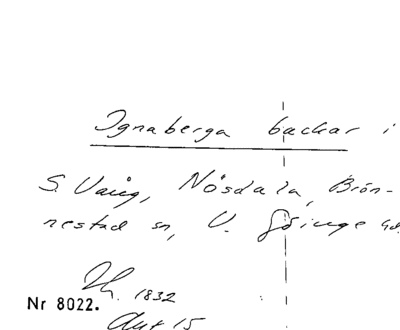 Ignaberga backar i
S. Vång, Nösdala, Brön-
nestad sn, V. Göinge hd
Th. 1832
Nr 8022.
Aut 15